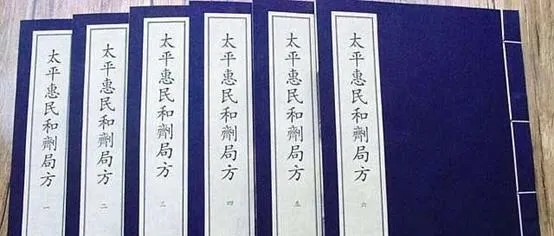 太平惠民和劑局方 一
太平惠民和劑局方 二
太平惠民和劑局方 三
太平惠民和劑局方 四
太平惠民和劑局方 五
太平惠民和劑局方 六